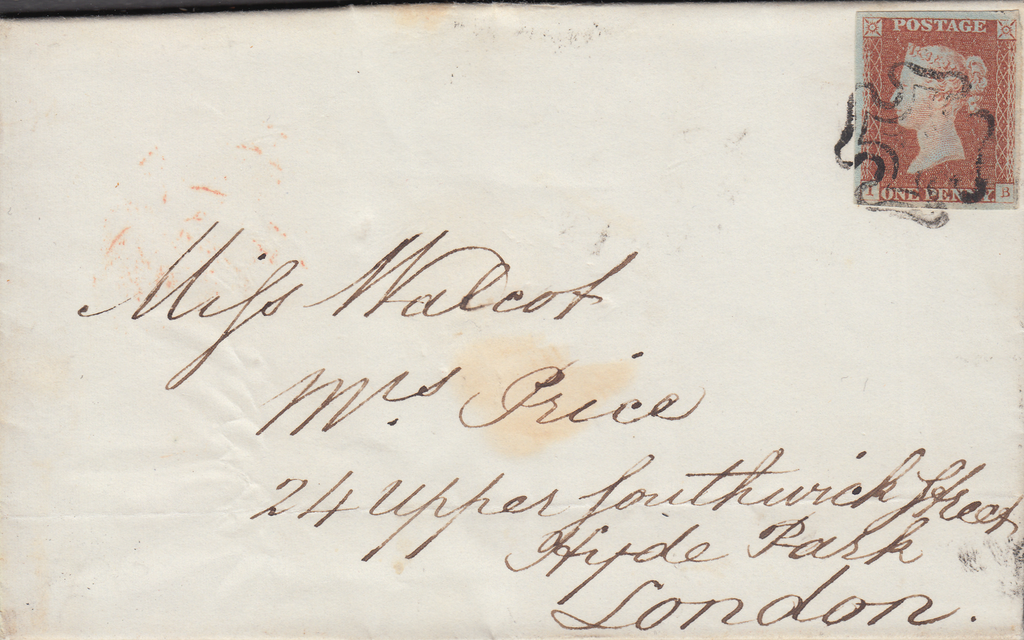 POSTAGE
ONE PENNY
I B
Miss Walcot
Mrs. Price
24 Upper Southwick Street
Hyde Park
London.